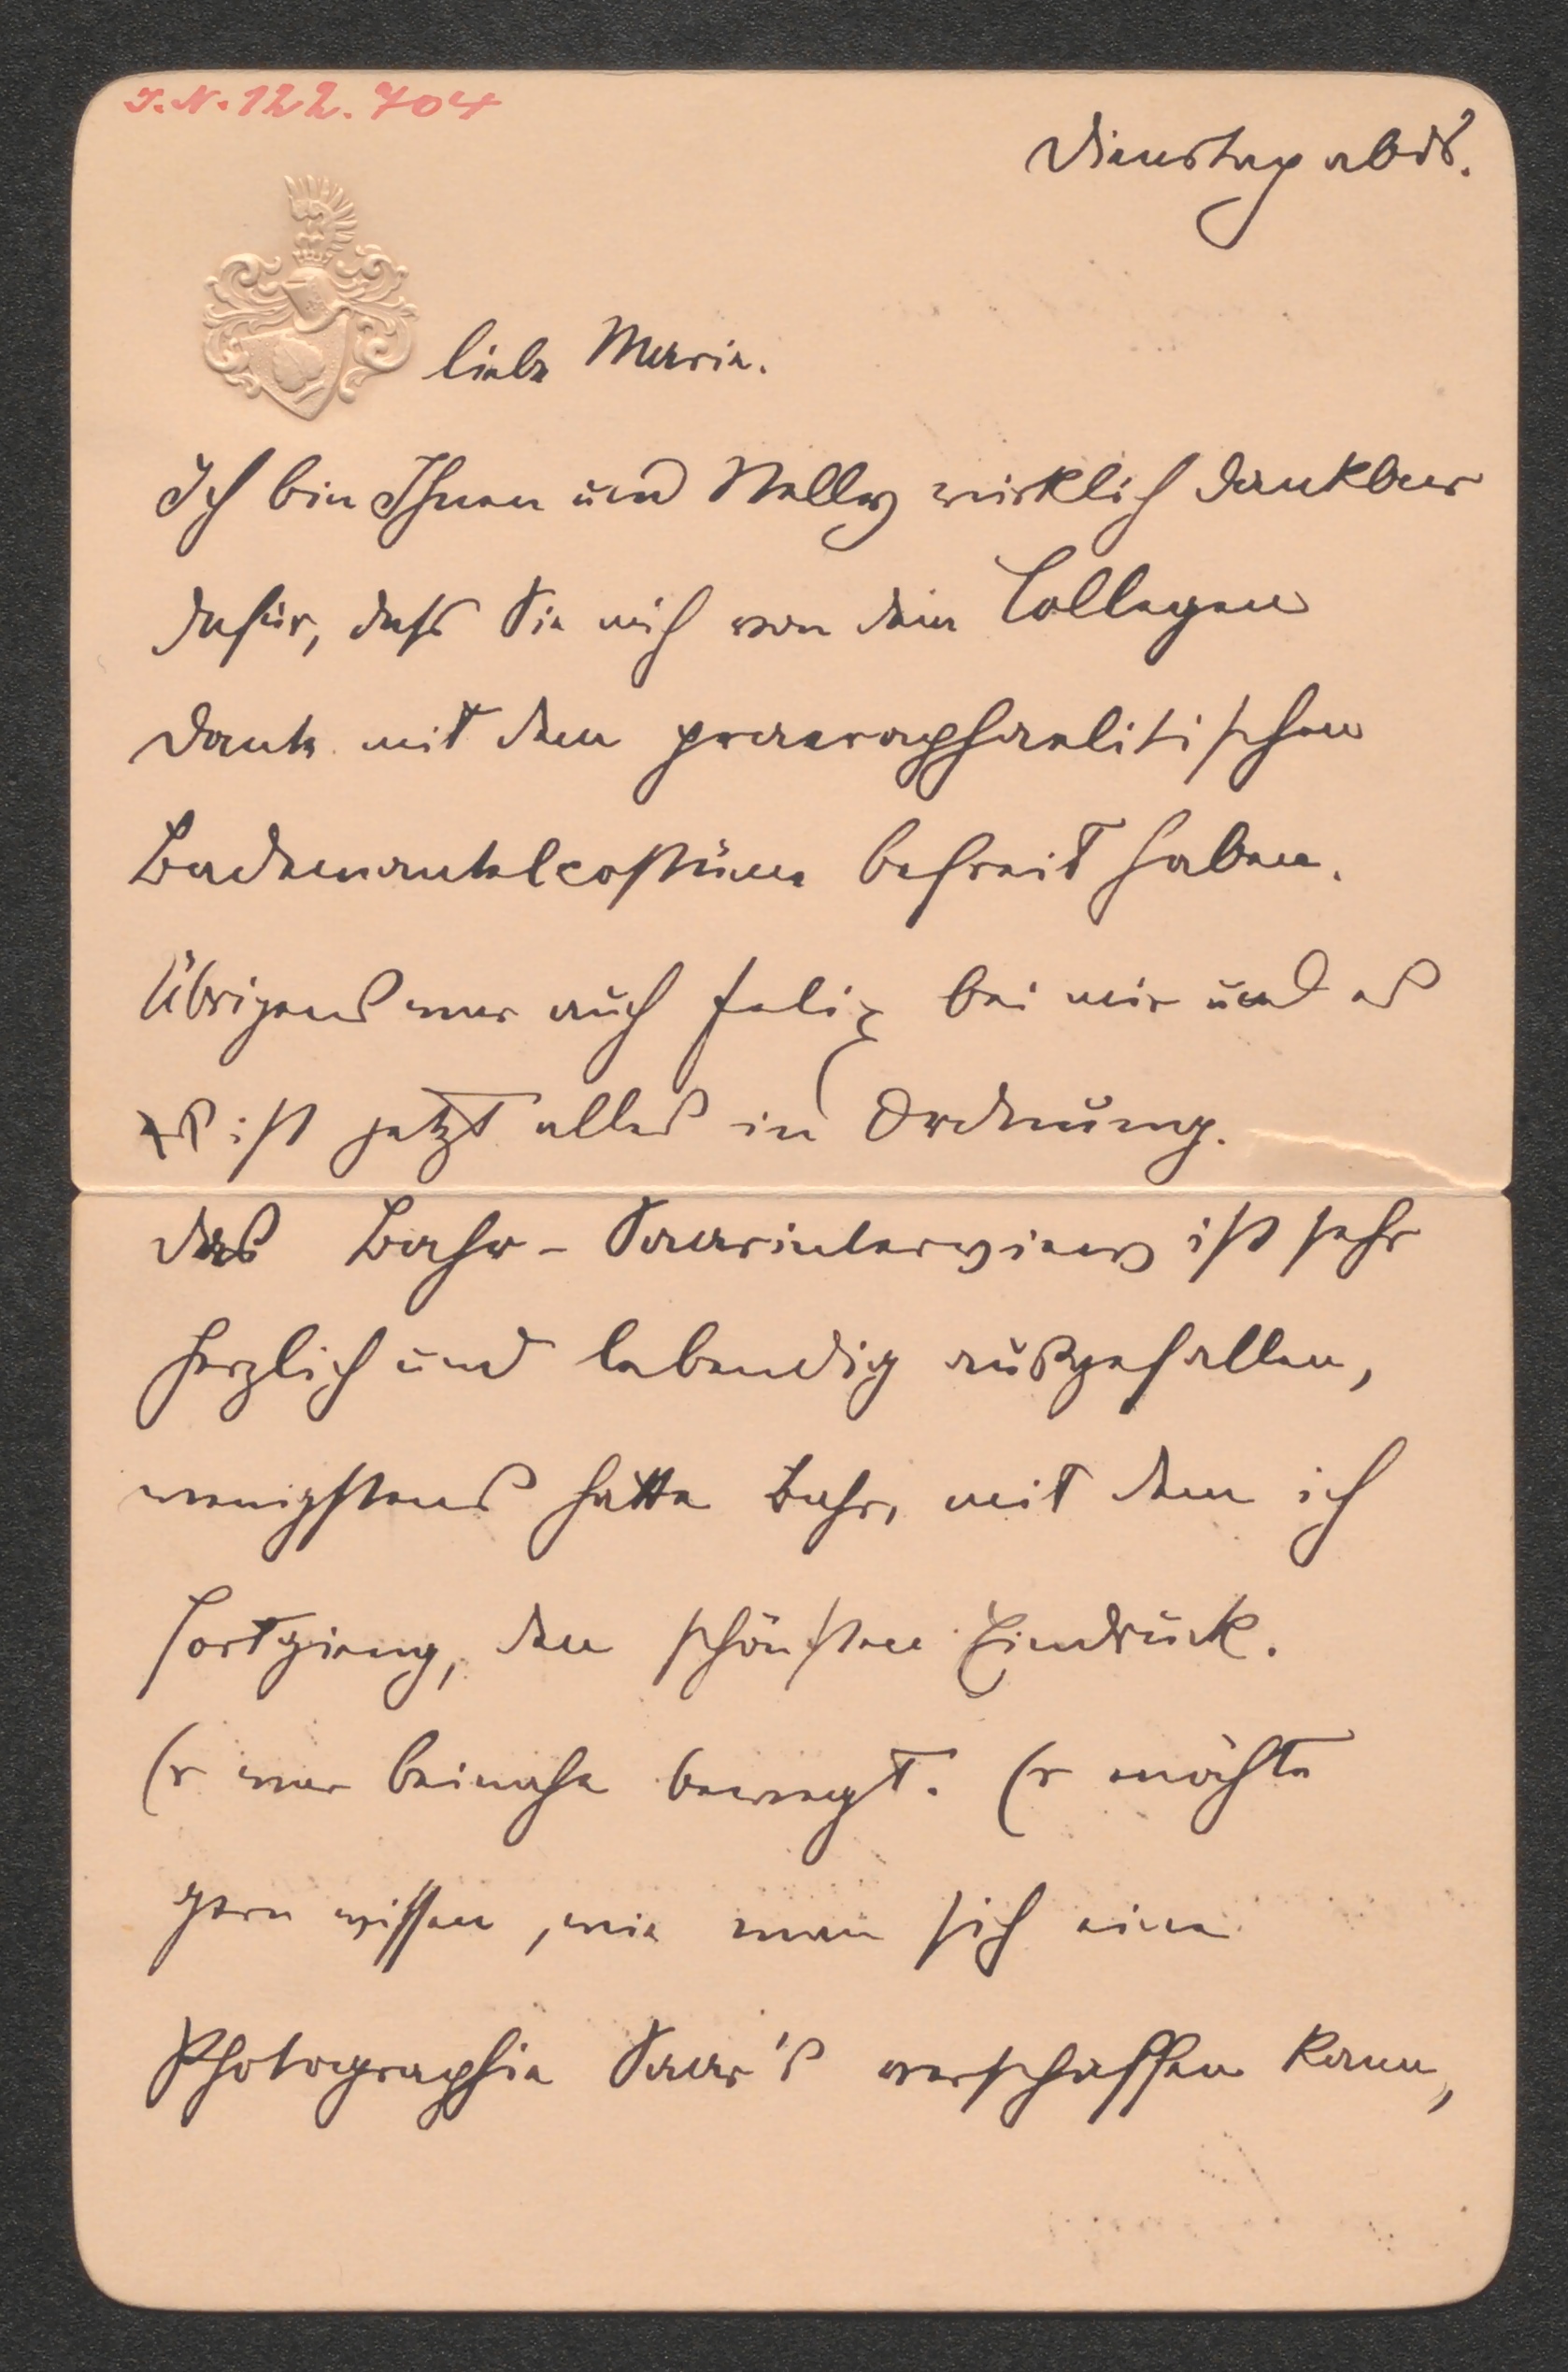 I.N. 122.704
Dienstag abds.
liebe Marie.
Ich bin Ihnen und Nelly wirklich dankbar
dafür, dass Sie mich von dem Collegen
Dante mit dem praeraphaelitischen
Bademantelcostüme befreit haben.
Übrigens war auch Felix bei mir und es
es ist jetzt alles in Ordnung.
Das Bahr-Saarinterview ist sehr
herzlich und lebendig ausgefallen,
wenigstens hatte Bahr, mit dem ich
fortgieng, den schönsten Eindruck.
Er war beinahe bewegt. Er möchte
gern wissen, wie man sich eine
Photographie Saar's verschaffen kann,